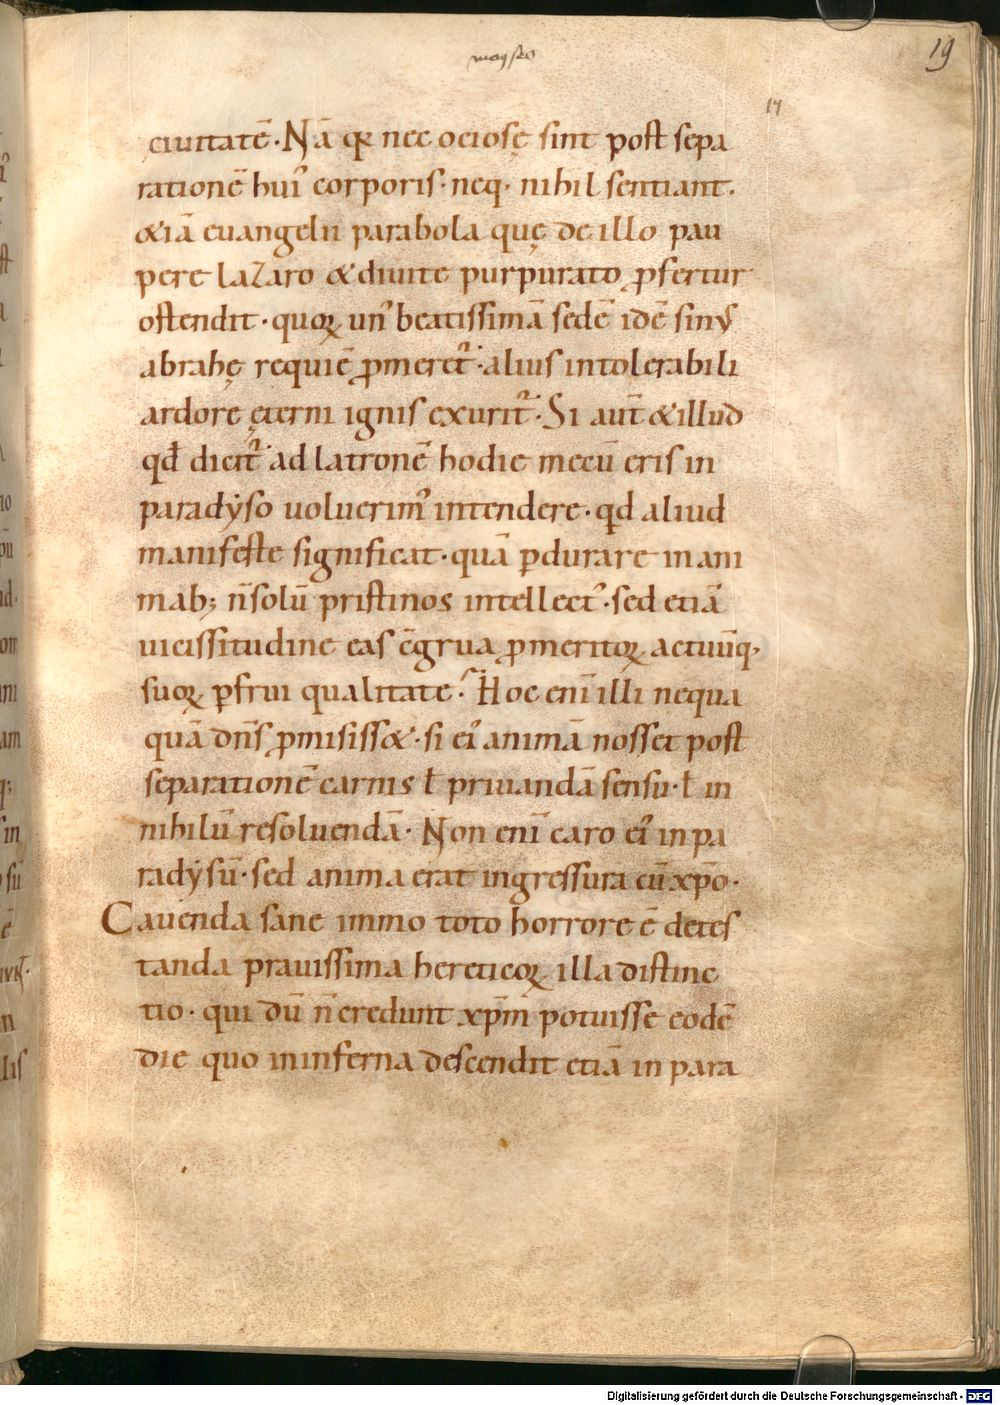 moyses
19
17
ciuitatē · Nā qꝛ nec ociosę sint post sepa
rationē hui᾽ corporis · neq· nihil sentiant ·
&iā euangelii parabola quę de illo pau
pere lazaro & diuite purpurato ꝓfertur
ostendit · quoꝝ un᾽ beatissimā sedē idē sinus
abrahę requiē ꝓmeret᾽ · alius intolerabili
ardore ęterni ignis exurit᾽ · Si aut̄ & illud
qđ dicit᾽ ad latronē hodie mecū eris in
paradẏso uoluerim᾽ intendere · qd aliud
manifeste significat · quā ꝑdurare in ani
mab; n̄ solū pristinos intellect᾽ · sed etiā
uicissitudine eas ċgrua ꝓ meritoꝝ actuūq·
suoꝝ ꝑfrui qualitate · Hoc enī illi nequa
quā dn̄s ꝓmisiss& · si ei᾽ animā nosset post
separationē carnis ł priuandā sensu · ł in
nihilū resoluendā · Non enī caro ei᾽ in pa
radẏsū · sed anima erat ingressura cū xp̄o ·
Cauenda sane immo toto horrore ē detes
tanda prauissima hereticoꝝ illa distinc
tio · qui dū n̄ credunt xp̄m potuisse eodē
die quo in inferna descendit etiā in para
Digitalisierung gefördert durch die Deutsche Forschungsgemeinschaft - DFG